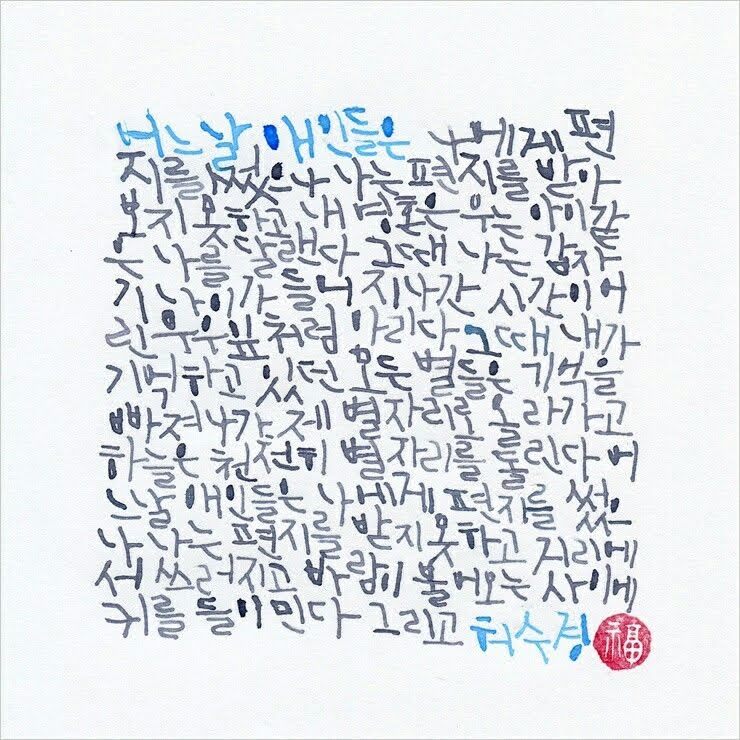 어느날 애인들은 나에게 편
지를 썼으나 나는 편지를 받아
보지 못하고 내 영혼은 우는 아이같
은 나를 달랜다 그때 나는 갑자
기 나이가 들어 지나간 시간이 어
린 무우잎처럼 아리다 그때 내가
기억하고 있던 모든 별들은 기억을
빠져나가 제 별자리로 올라가고
하늘은 천천히 별자리를 돌린다 어
느날 애인들은 나에게 편지를 썼으
나 나는 편지를 받지 못하고 거리에
서 쓰러지고 바람이 불어오는 사이에
귀를 들이민다 그리고 허수경 福